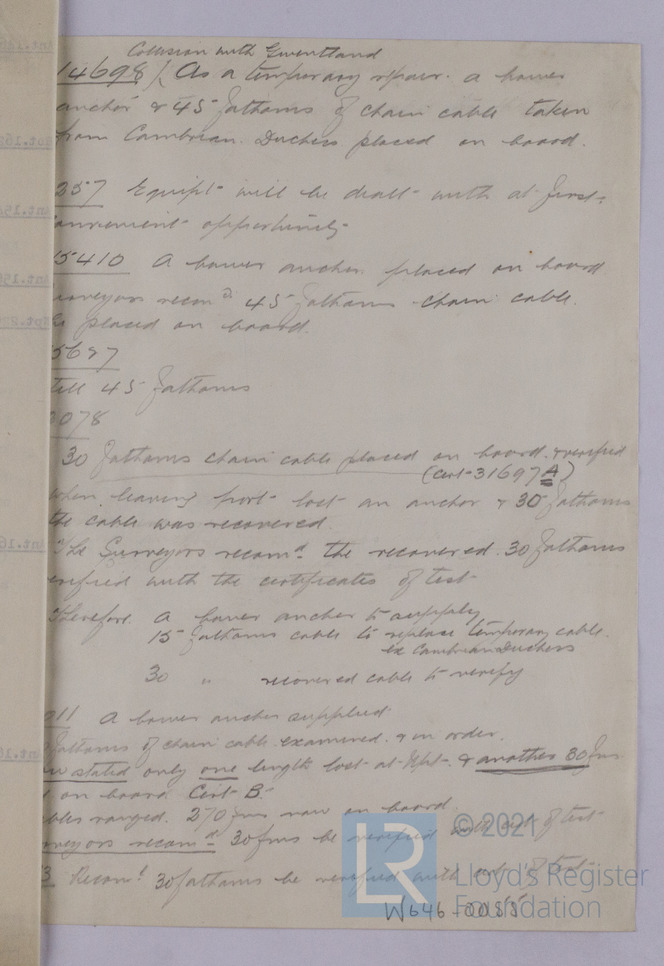 Collision with Gwentland
14698 As a temporary repair. a bower
anchor & 45 fathoms of chain cable taken
from Cambrian. Duchess placed on board.
257 Equipt will be dealt with at first
convenient opportunity
15410 A bower anchor placed on board
Surveyors recomd 45 fathoms chain cable.
be placed on board.
5697
still 45 fathoms
078
30 fathoms chain cable placed on board. & verified
(Cert-31697A)
when leaving port lost an anchor & 30 fathoms
the cable was recovered.
The Surveyors recomd the recovered 30 fathoms
verified with the certificates of test
Therefore. A bower anchor to supply
15 fathoms cable to replace temporary cable.
ex Cambrian Duchess
30 " recovered cable to verify
011 A bower anchor supplied
fathoms of chain cable examined & in order.
stated only one length lost at Npt. & another 30 fms
on board Cert B.
cables ranged. 270 fms now on board.
Surveyors recomd 30 fms be verified with cert of test
3 Recomd 30 fathoms be verified with cert of test
© 2021
LR
Lloyd's Register
Foundation
W646-0085